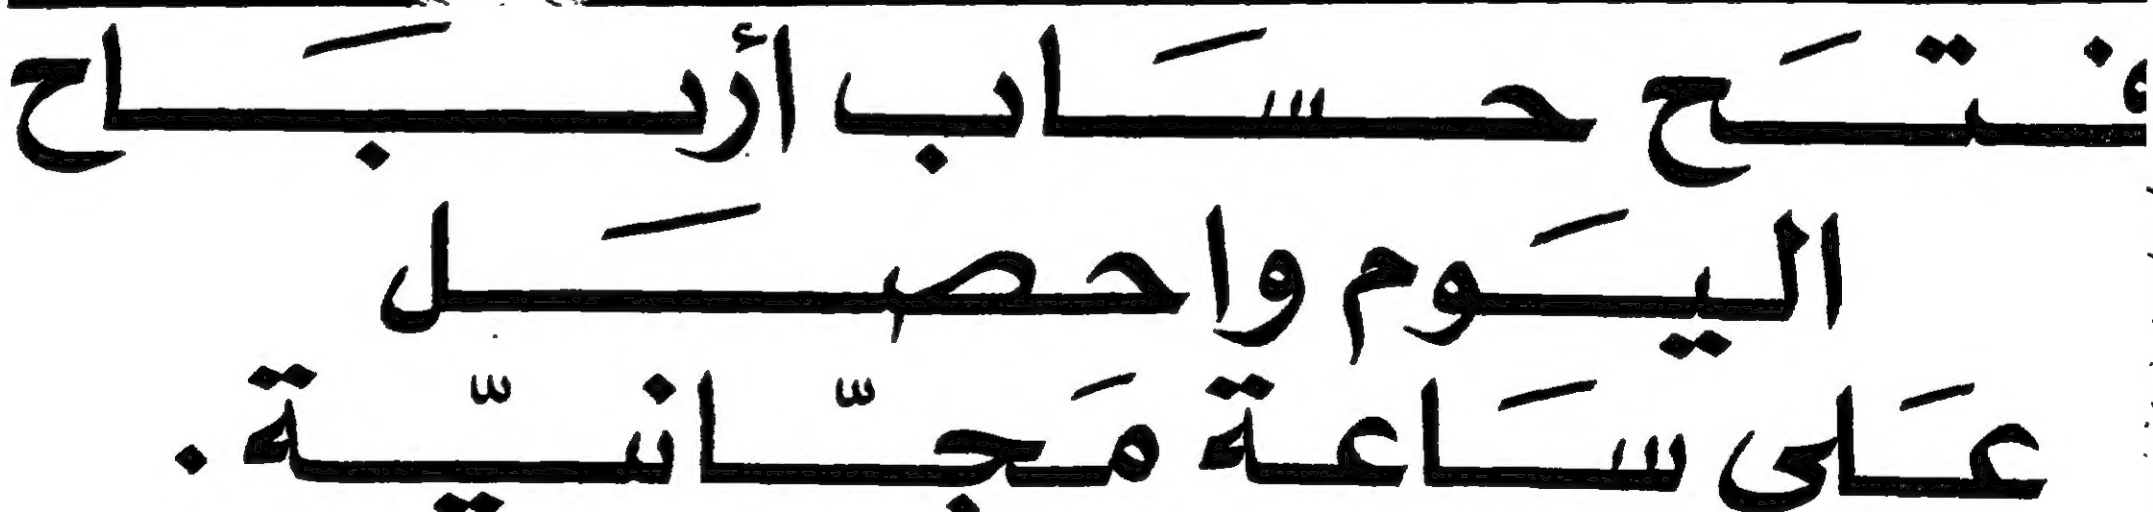 فتَح حسَاب أربَاح
اليَوم واحصَل
عَلى سَاعة مَجّانيّة .